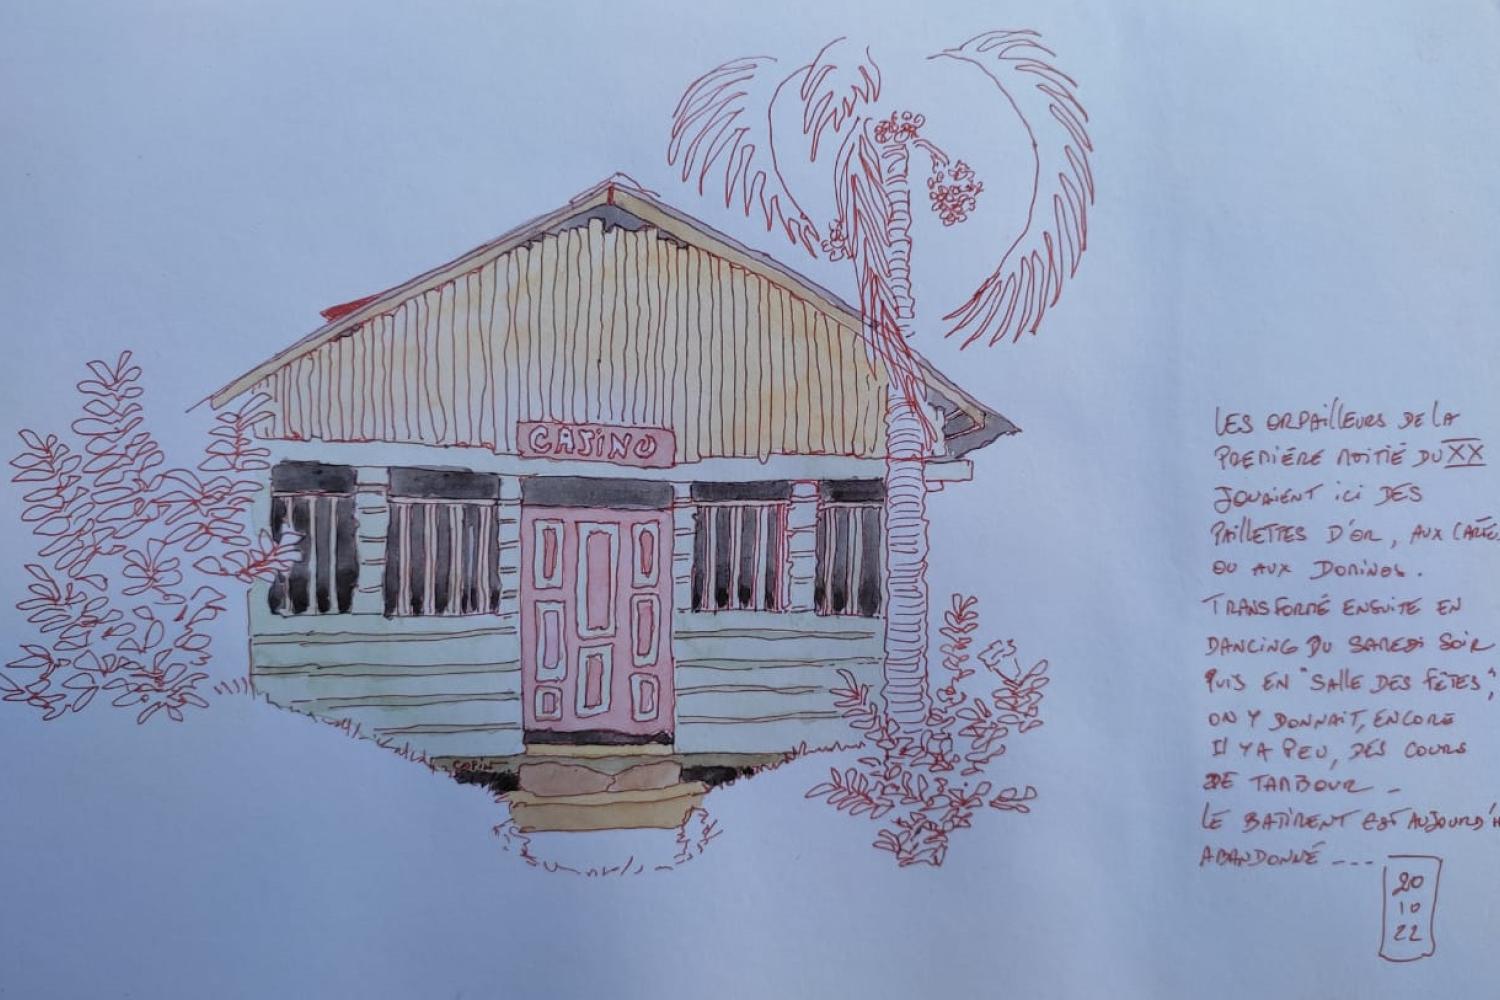 CASINO
LES ORPAILLEURS DE LA
PREMIÈRE MOITIÉ DU XX
JOUAIENT ICI DES
PAILLETTES D'OR, AUX CARTES
OU AUX DOMINOS.
TRANSFORMÉ ENSUITE EN
DANCING DU SAMEDI SOIR
PUIS EN "SALLE DES FÊTES",
ON Y DONNAIT, ENCORE
IL Y A PEU, DES COURS
DE TAMBOUR _
LE BATIMENT EST AUJOURD'H
ABANDONNÉ ---
20
10
22